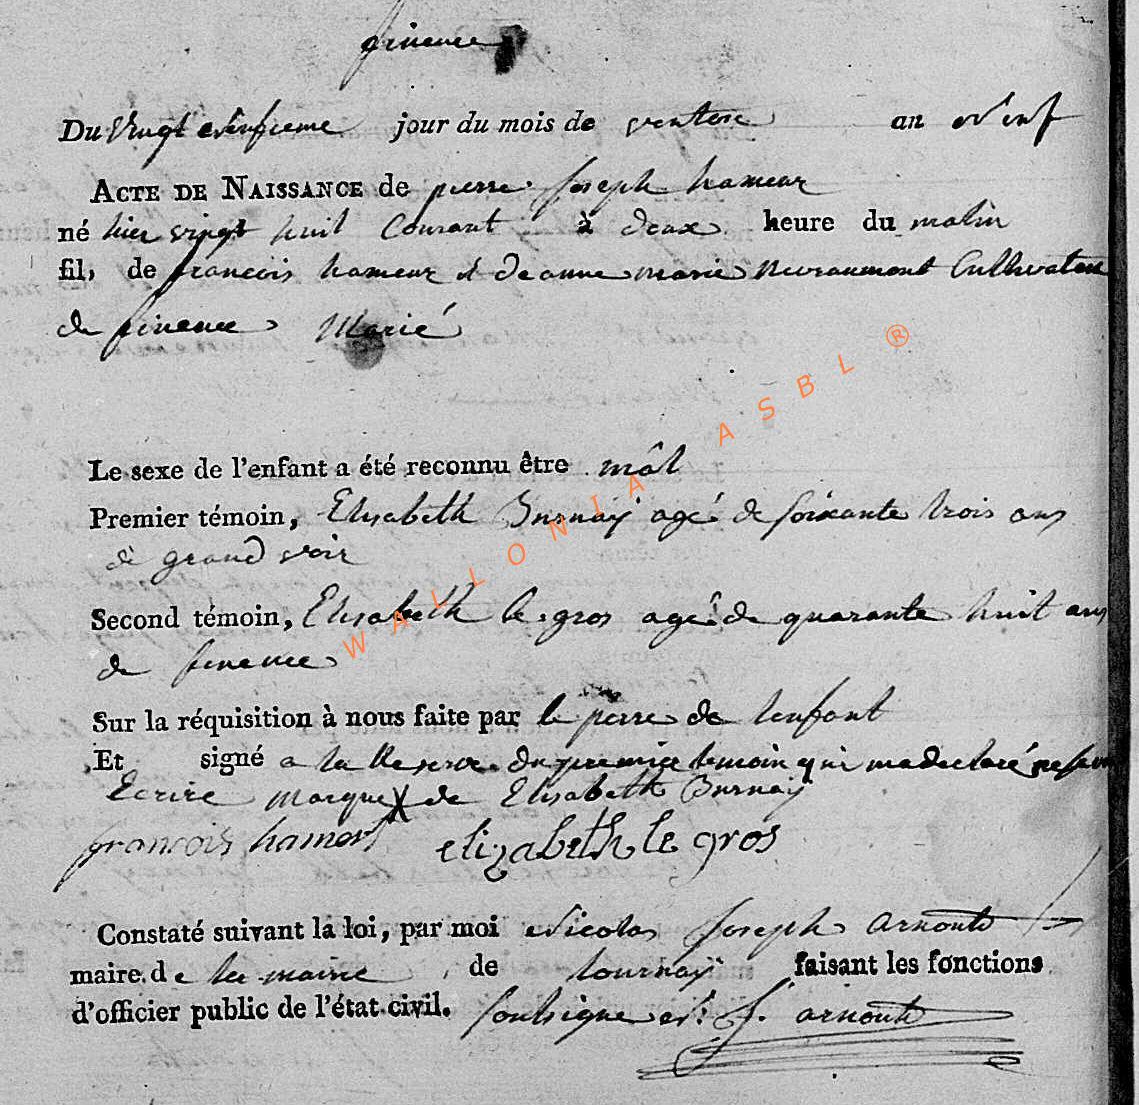 finence
Du vingt neufieme jour du mois de ventose an neuf
ACTE DE NAISSANCE de pierre Joseph hameur
né hier vingt huit Courant à deux heure du matin
fils de francois hameur et de anne marie Neuraumont Cultivateur
de finence Marié
Le sexe de l'enfant a été reconnu être mâl
Premier témoin, Elisabeth Burnaÿ agé de soixante trois ans
de grand voir
Second témoin, Elisabeth le gros agé de quarante huit ans
de finence
Sur la réquisition à nous faite par le perre de lenfant
Et signé a la Reserve du premier temoin qui ma declaré ne savoir
Ecrire marque X de Elisabeth Burnaÿ
francois hameur elizabeth le gros
Constaté suivant la loi, par moi Nicolas Joseph arnould
maire de la mairie de tournaÿ faisant les fonctions
d'officier public de l'état civil. soulsigne N: J. arnould
WALLONIA ASBL ®